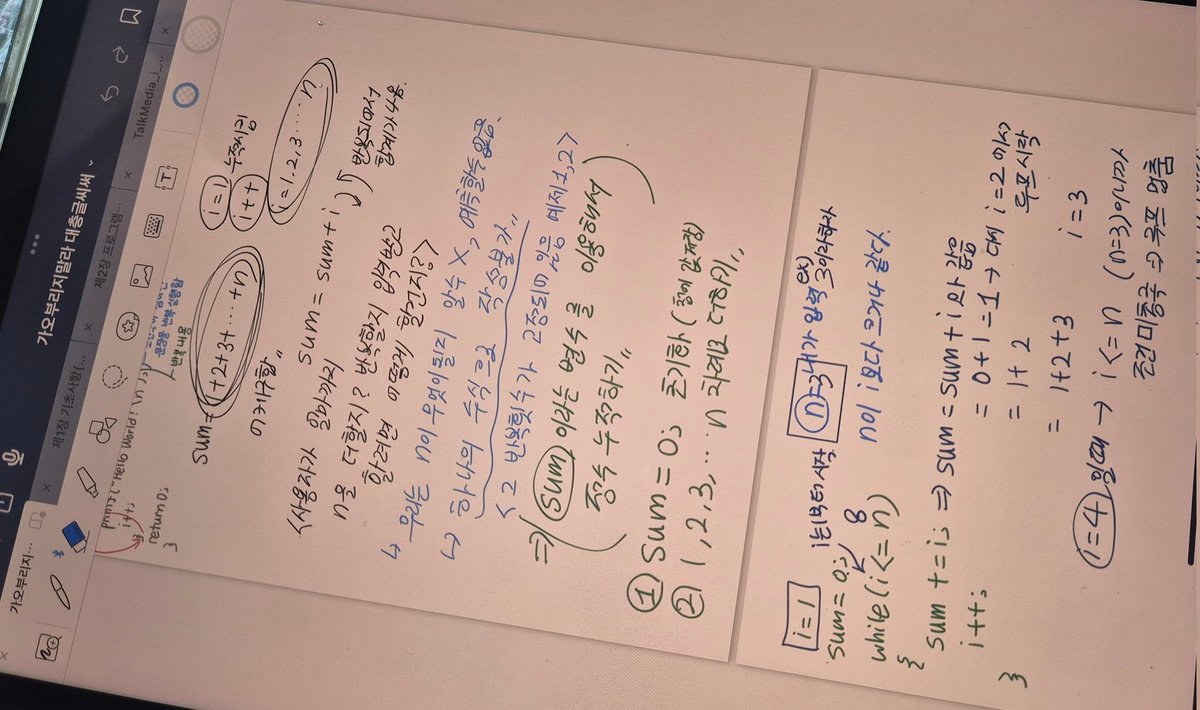 가오부리지말라 대충글씨써
가오부리지...
제1장 기초사항(...
제2장 프로그램...
TalkMedia_i_...
printf("Hello World! \n");
i++;
}
return 0;
}
문장을 반복 실행함
반복 내용
sum = 1+2+3+ ··· +n
i=1
i++ 누적시킴
i=1,2,3 ···· n
이거구함"
<사용자가 얼마까지 sum = sum+i
반복되면서
합계가 나옴
n을 더할지? 반복할지 입력받고
할려면 어떻게 할건지?>
우리는 n이 무엇이 될지 알수 X, 예측할수 없음.
하나의 수식으로 작성불가"
< 2 반복횟수가 고정되어있음 예제1,2>
⇒ (sum)이라는 변수를 이용해서
정수 누적하기"
① sum = 0; 초기화 (합이 값 저장)
② 1,2,3,··· n 차례로 더하기"
i=1
i는 1부터 시작
n=3 내가 입력 ex) 3이라하자
sum=0;
while(i<=n) n이 i보다 크거나 같다.
{
sum += i; ⇒ sum = sum+i 와 같음
= 0+1 = 1 → 다시 i=2 이상
루프시작
i++;
= 1+2
}
= 1+2+3 i=3
i=4 일때 → i<=n (n=3)이니까
조건 미충족 ⇒ 루프 멈춤